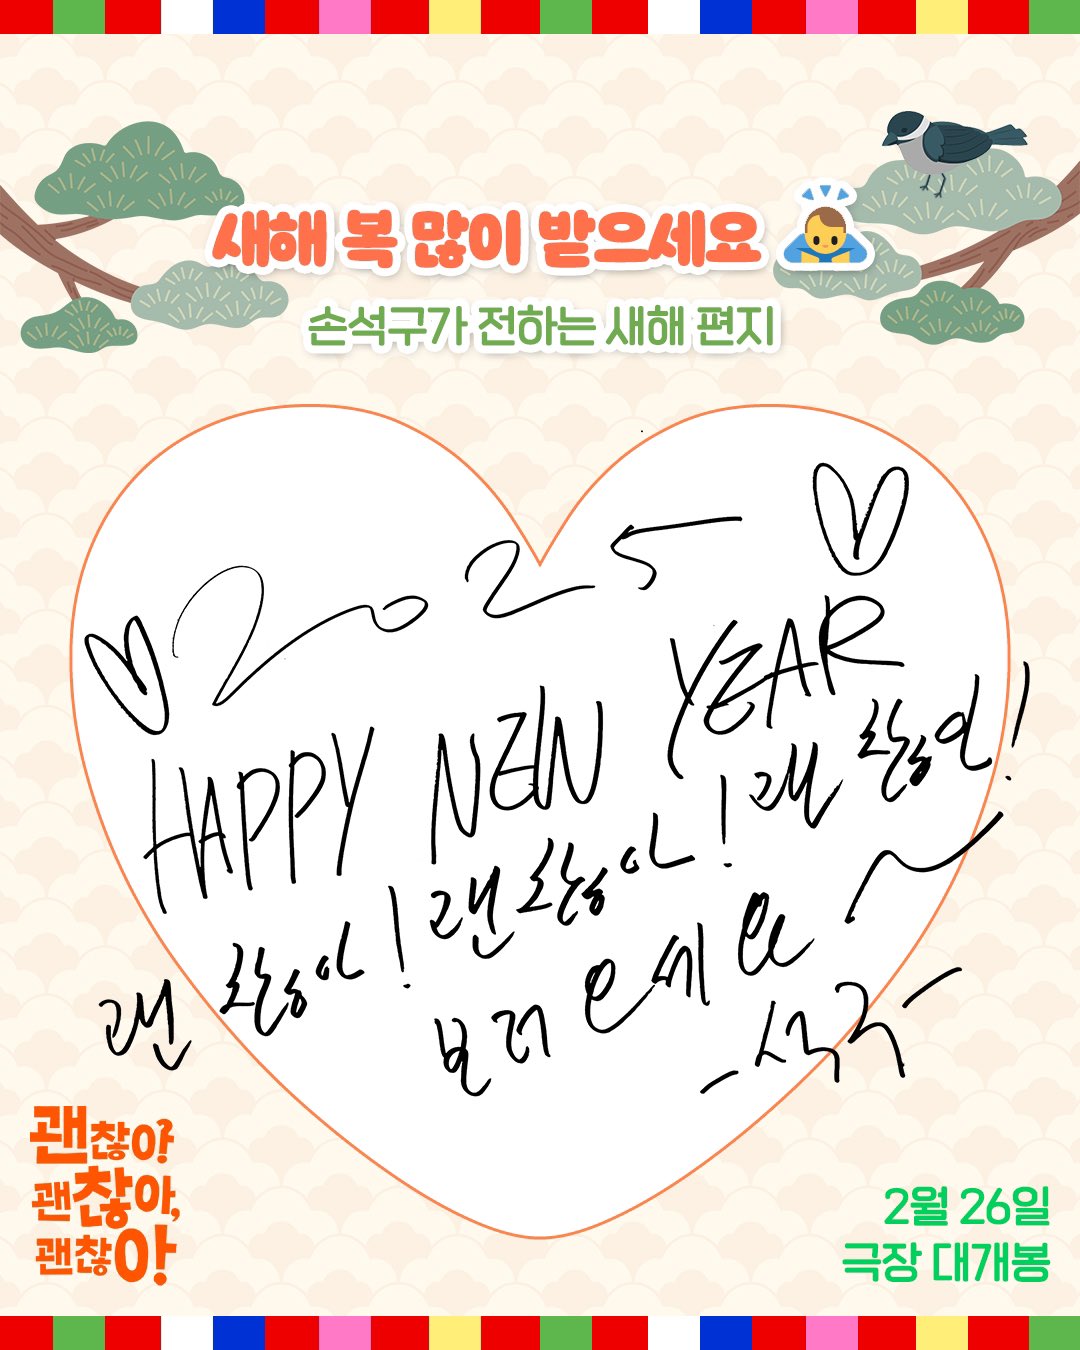 새해 복 많이 받으세요
손석구가 전하는 새해 편지
2025
HAPPY NEW YEAR
괜찮아! 괜찮아! 괜찮아!
보러 오세요~
-석구-
괜찮아?
괜찮아,
괜찮아!
2월 26일
극장 대개봉